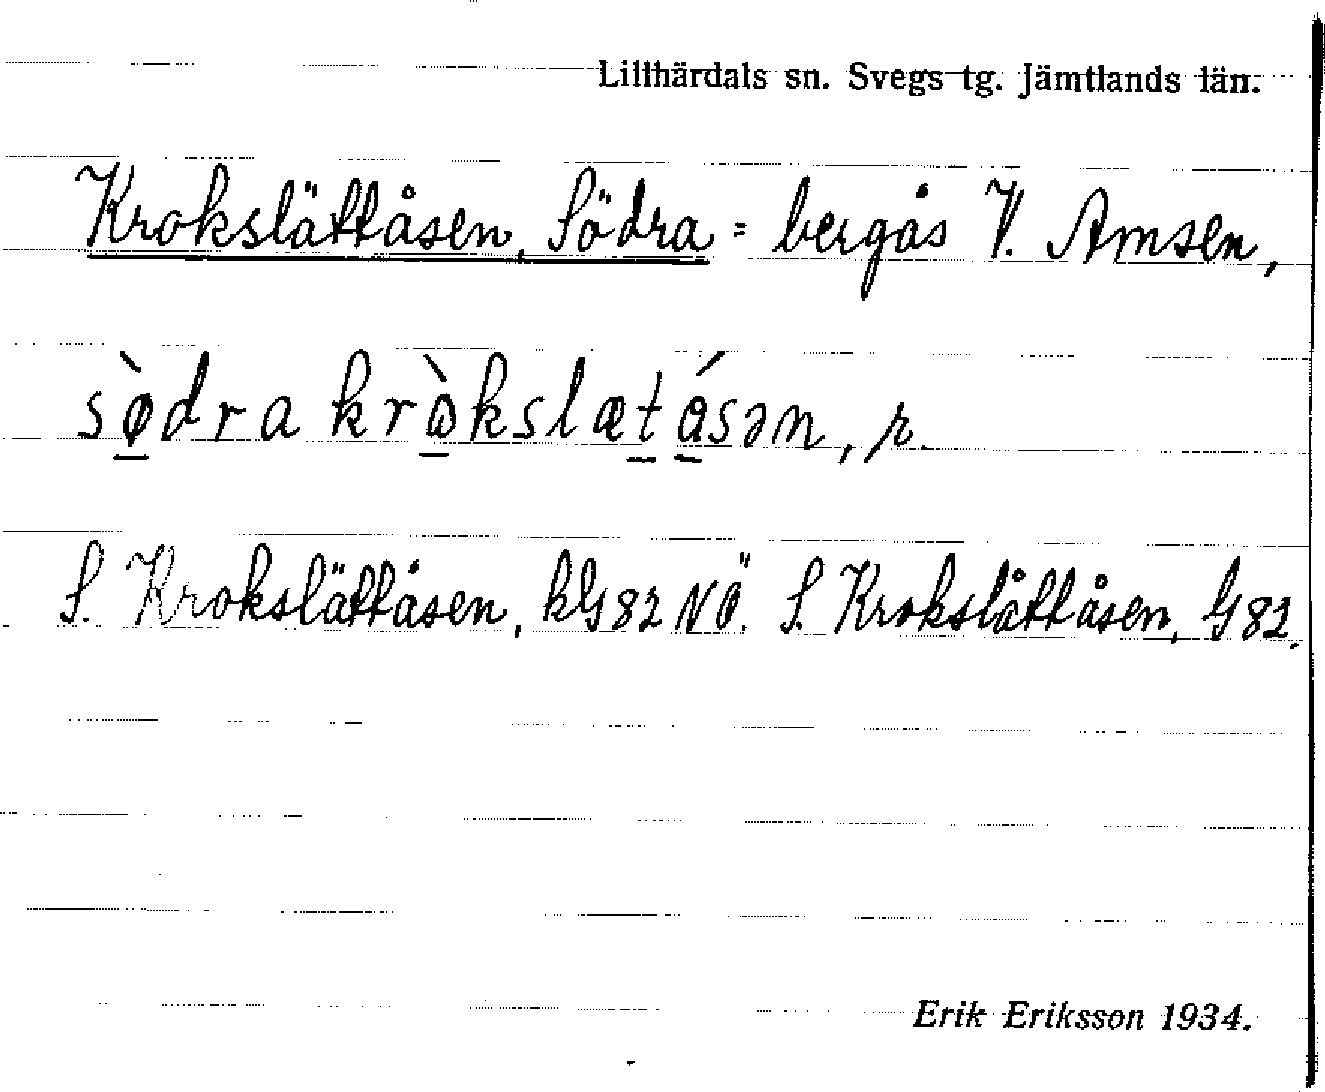 Lillhärdals sn. Svegs tg. Jämtlands län.
Krokslättåsen, Södra = bergås V. Amsen,
sø̠̀dra krὼ̠kslæt̠á̠sən, r.
S. Krokslättåsen, kG82 NÖ. S. Krokslåttåsen, G82.
Erik Eriksson 1934.